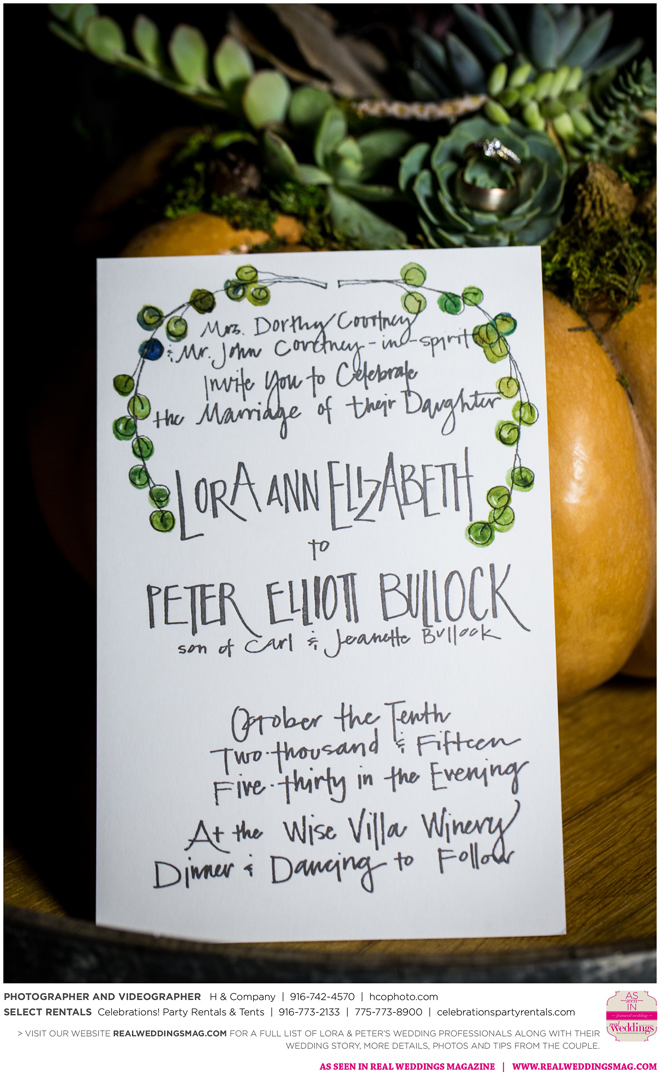 Mrs. Dorthy Cortney
& Mr. John Cortney-in-spirit
Invite You to Celebrate
the Marriage of their Daughter
LORA ANN ELIZABETH
to
PETER ELLIOTT BULLOCK
son of Carl & Jeanette Bullock
October the Tenth
Two-thousand & Fifteen
Five-thirty in the Evening
At the Wise Villa Winery
Dinner & Dancing to Follow
PHOTOGRAPHER AND VIDEOGRAPHER H & Company | 916-742-4570 | hcophoto.com
SELECT RENTALS Celebrations! Party Rentals & Tents | 916-773-2133 | 775-773-8900 | celebrationspartyrentals.com
> VISIT OUR WEBSITE REALWEDDINGSMAG.COM FOR A FULL LIST OF LORA & PETER'S WEDDING PROFESSIONALS ALONG WITH THEIR
WEDDING STORY, MORE DETAILS, PHOTOS AND TIPS FROM THE COUPLE.
AS SEEN IN
Weddings
AS SEEN IN REAL WEDDINGS MAGAZINE | WWW.REALWEDDINGSMAG.COM